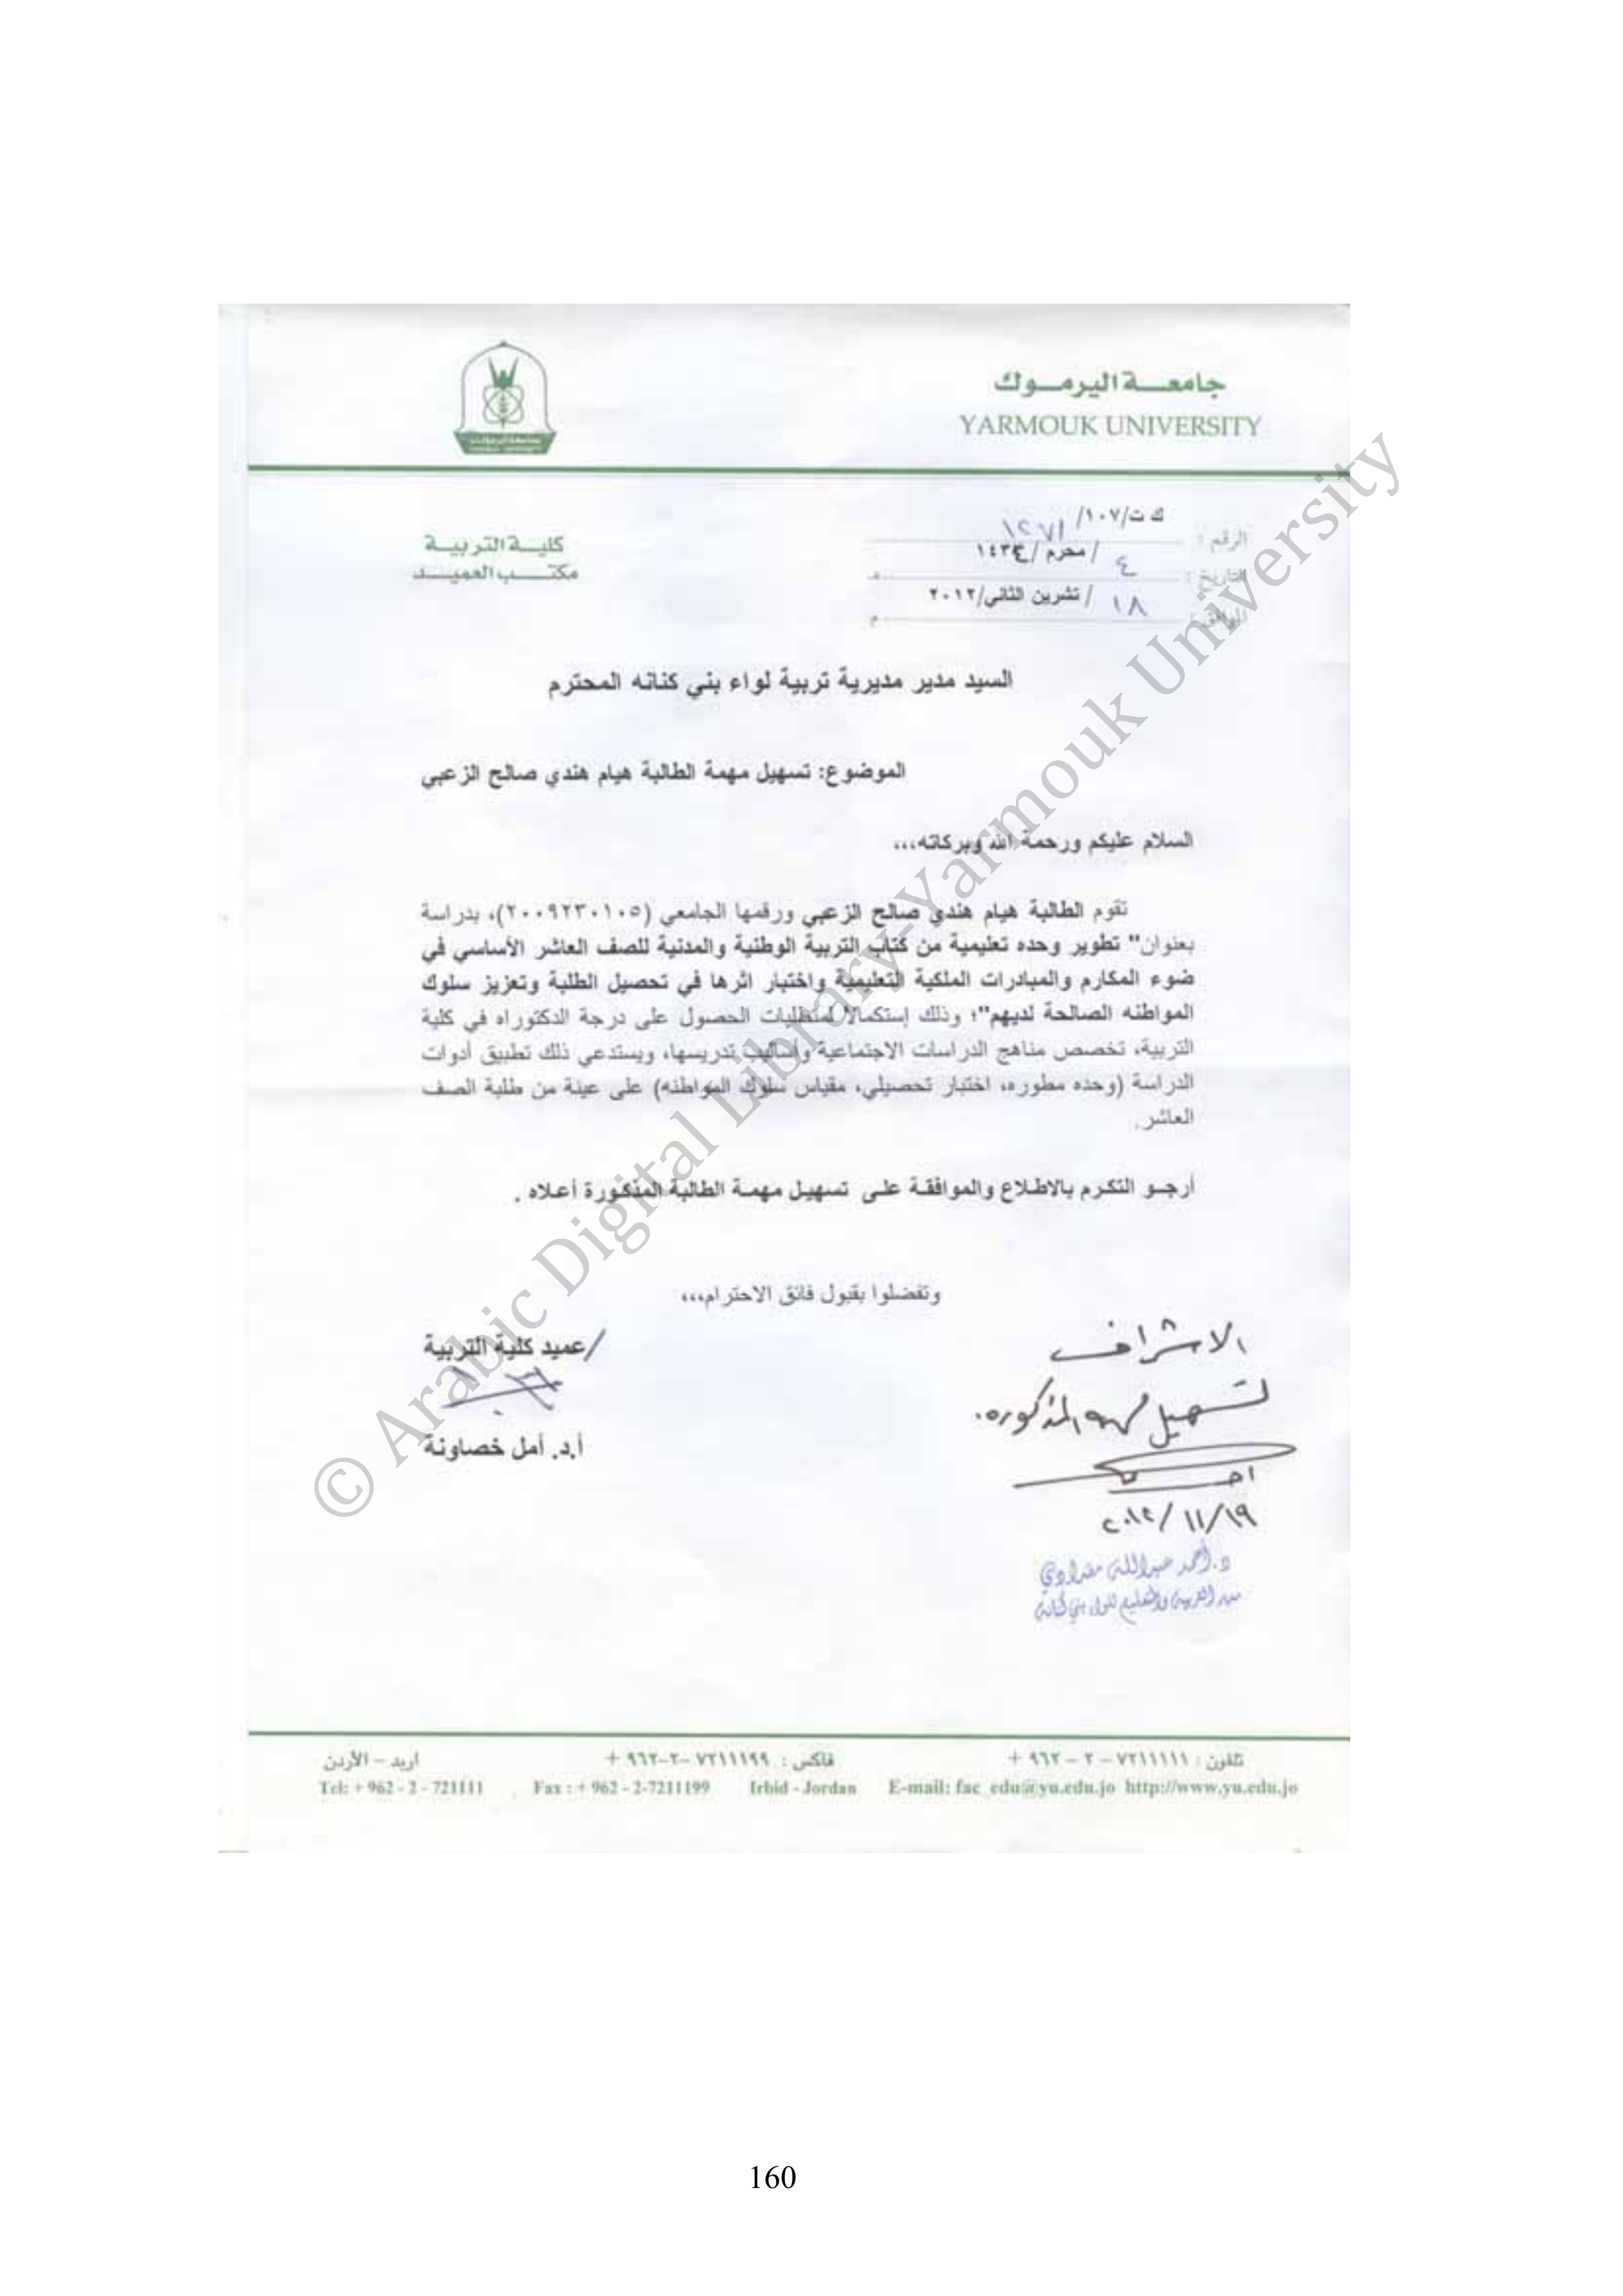 جامعة اليرموك
YARMOUK UNIVERSITY
الرقم : ك ت/١٠٧/١٢٧١
التاريخ : ٤ / محرم /١٤٣٤ هـ
الموافق : ١٨ / تشرين الثاني/٢٠١٢ م
كلية التربية
مكتب العميد
السيد مدير مديرية تربية لواء بني كنانه المحترم
الموضوع: تسهيل مهمة الطالبة هيام هندي صالح الزعبي
السلام عليكم ورحمة الله وبركاته،،،
تقوم الطالبة هيام هندي صالح الزعبي ورقمها الجامعي (٢٠٠٩٢٣٠١٠٥)، بدراسة
بعنوان" تطوير وحده تعليمية من كتاب التربية الوطنية والمدنية للصف العاشر الأساسي في
ضوء المكارم والمبادرات الملكية التعليمية واختبار اثرها في تحصيل الطلبة وتعزيز سلوك
المواطنه الصالحة لديهم"؛ وذلك إستكمالاً لمتطلبات الحصول على درجة الدكتوراه في كلية
التربية، تخصص مناهج الدراسات الاجتماعية وأساليب تدريسها، ويستدعي ذلك تطبيق أدوات
الدراسة (وحده مطوره، اختبار تحصيلي، مقياس سلوك المواطنه) على عينة من طلبة الصف
العاشر.
أرجو التكرم بالاطلاع والموافقة على تسهيل مهمة الطالبة المذكورة أعلاه .
وتفضلوا بقبول فائق الاحترام،،،
/عميد كلية التربية
أ.د. أمل خصاونة
الاشراف
لتسهيل مهمه المذكوره.
٢٠١٢/١١/١٩
د. أحمد عبدالله
مدير التربية والتعليم للواء بني كنانة
تلفون : ٧٢١١١١١ – ٢ – ٩٦٢ +
فاكس : ٧٢١١١٩٩ –٢–٩٦٢ +
اربد – الأردن
Tel: + 962 - 2 - 721111 Fax : + 962 - 2-7211199 Irbid - Jordan E-mail: fac_edu@yu.edu.jo http://www.yu.edu.jo
© Arabic Digital Library-Yarmouk University
160